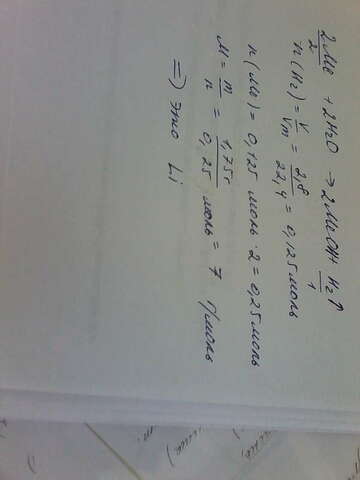 2Me + 2H2O → 2MeOH + H2↑
2 1
n(H2) = V/Vm = 2,8/22,4 = 0,125 моль
n(Me) = 0,125 моль · 2 = 0,25 моль
M = m/n = 1,75г/0,25 моль = 7 г/моль
=) это Li